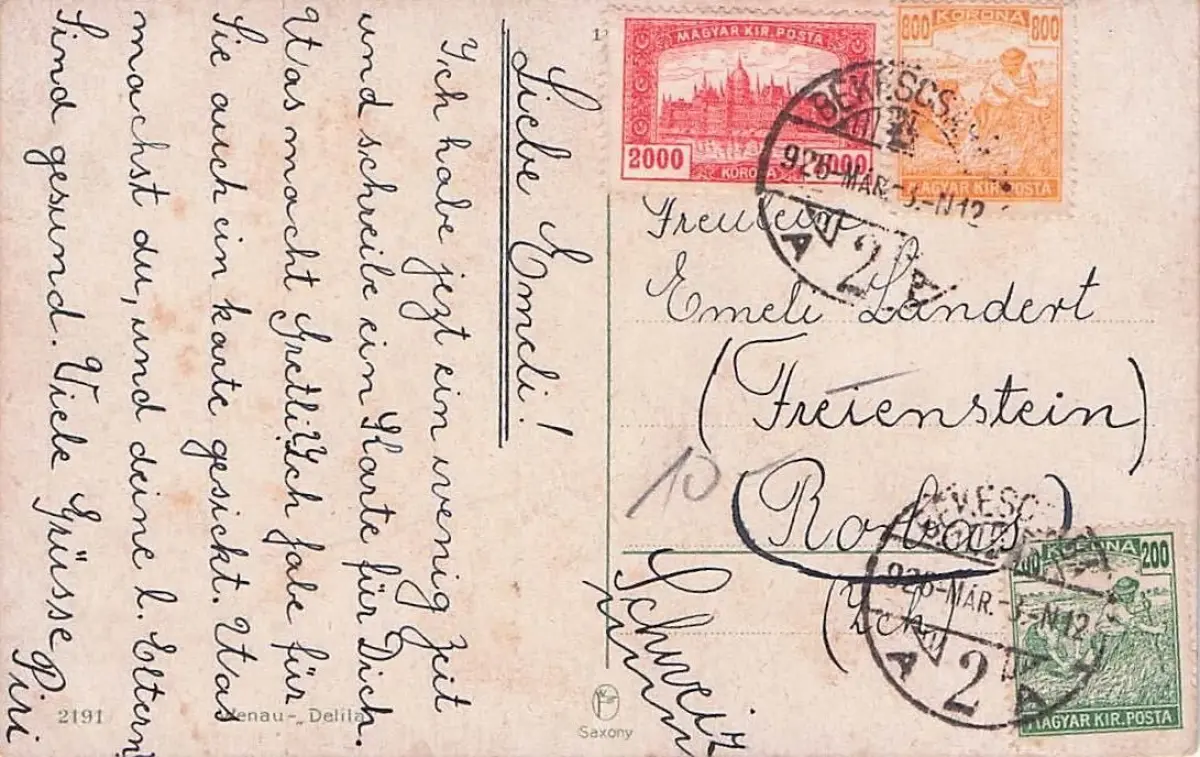 Liebe Emeli!
Ich habe jezt ein wenig Zeit
und schreibe ein Karte für Dich.
Was macht Gretli? Ich habe für
Sie auch ein karte gesickt. Was
machst du, und deine l. Eltern?
Sind gesund. Viele Grüsse
Piri
MAGYAR KIR. POSTA
2000
KORONA
800 KORONA 800
MAGYAR KIR. POSTA
BÉKÉSCS
MÁR.
N12
A 2 A
Freulein
Emeli Landert
(Freienstein)
10
(Rorbas)
Schweiz
MÁR.
N12
A 2 A
200 KORONA 200
MAGYAR KIR. POSTA
2191
"Delila
Saxony